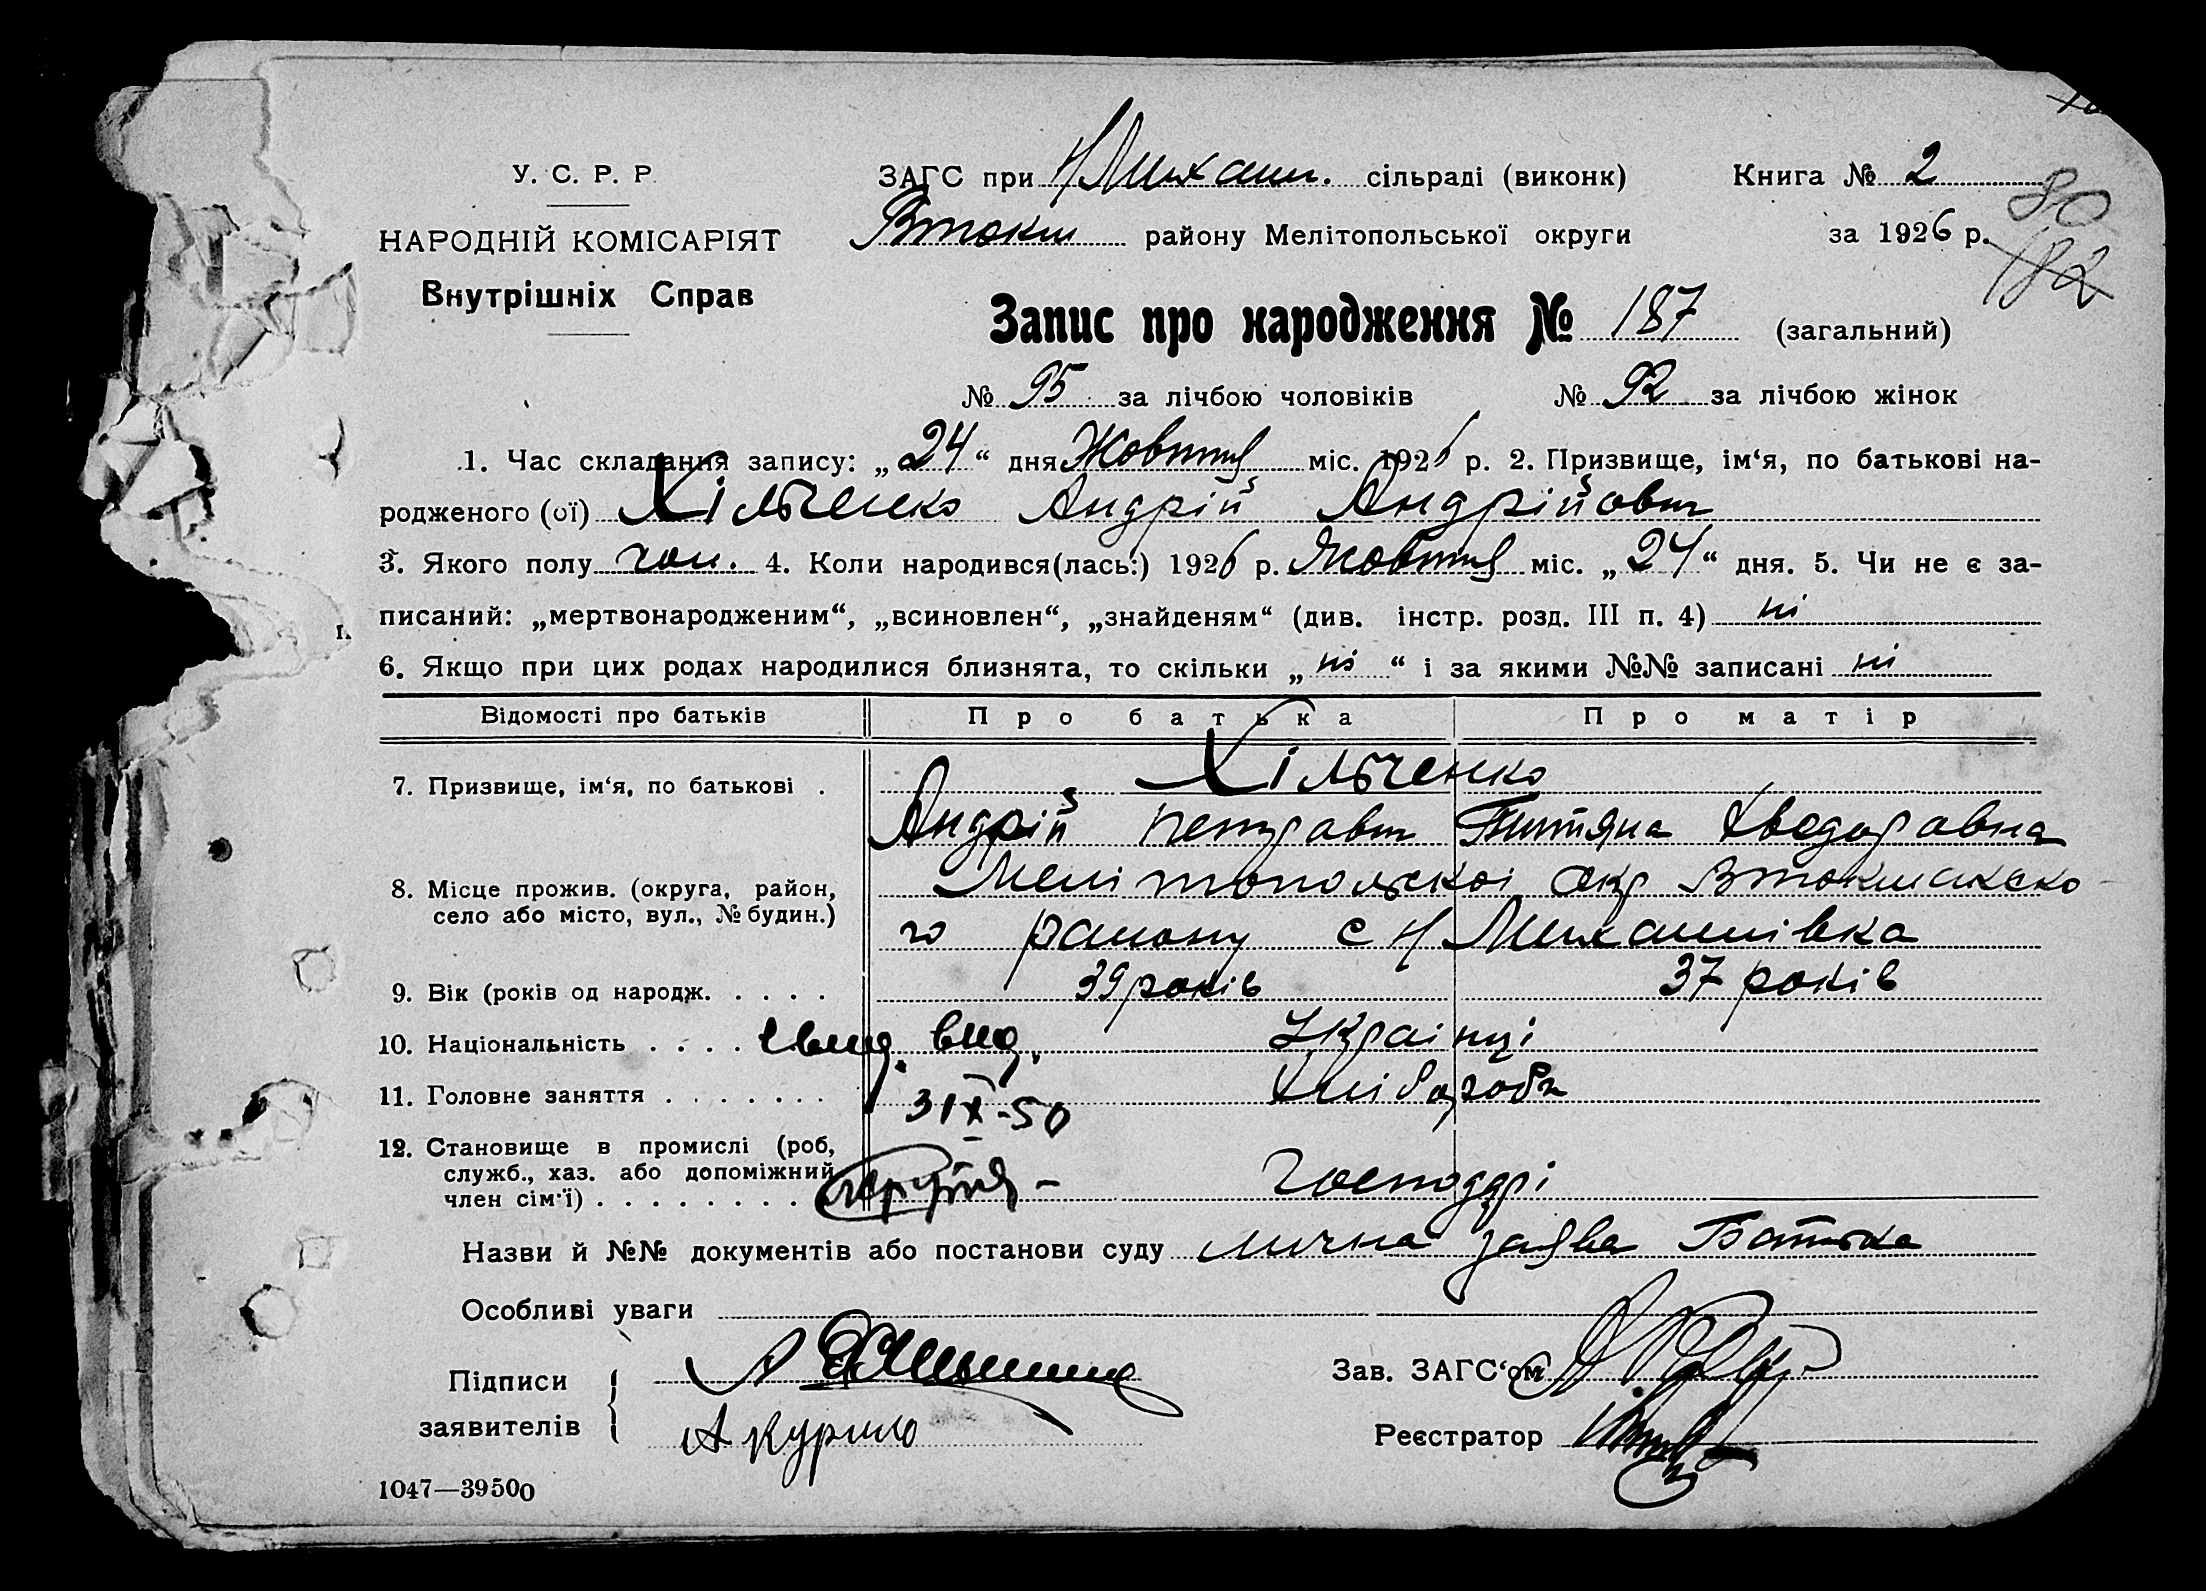 У. С. Р. Р.
НАРОДНІЙ КОМІСАРІЯТ
Внутрішніх Справ
ЗАГС при Н Михайл. сільраді (виконк)
Втокм району Мелітопольської округи
Книга № 2
за 1926 р.
80
182
Запис про народження № 187 (загальний)
№ 95 за лічбою чоловіків № 92 за лічбою жінок
1. Час складання запису: „24“ дня Жовтня міс. 1926 р. 2. Призвище, ім‘я, по батькові на-
родженого (ої) Хільченко Андрій Андрійович
3. Якого полу чол. 4. Коли народився(лась:) 1926 р. Жовтня міс. „24“ дня. 5. Чи не є за-
писаний: „мертвонародженим“, „всиновлен“, „знайденям“ (див. інстр. розд. III п. 4) ні
6. Якщо при цих родах народилися близнята, то скільки „ні“ і за якими №№ записані ні
Відомості про батьків Про батька Про матір
7. Призвище, ім‘я, по батькові . Хільченко
Андрій Петрович Титяна Хведоровна
8. Місце прожив. (округа, район,
село або місто, вул., № будин.)
Мелітопольскоі окр Втокмакско-
го району с Н Михайлівка
9. Вік (років од народж. . . . . 39 років 37 років
10. Національність . . . . Українці
свид. выд.
11. Головне заняття . . . . . . . Хліборобн
31 X-50
12. Становище в промислі (роб,
служб., хаз. або допоміжний
член сім‘ї) . . . . . . . . . Господарі
Назви й №№ документів або постанови суду лична заява Батька
Особливі уваги
Підписи
заявителів
А Курило
Зав. ЗАГС‘ом
Реєстратор
1047—39500